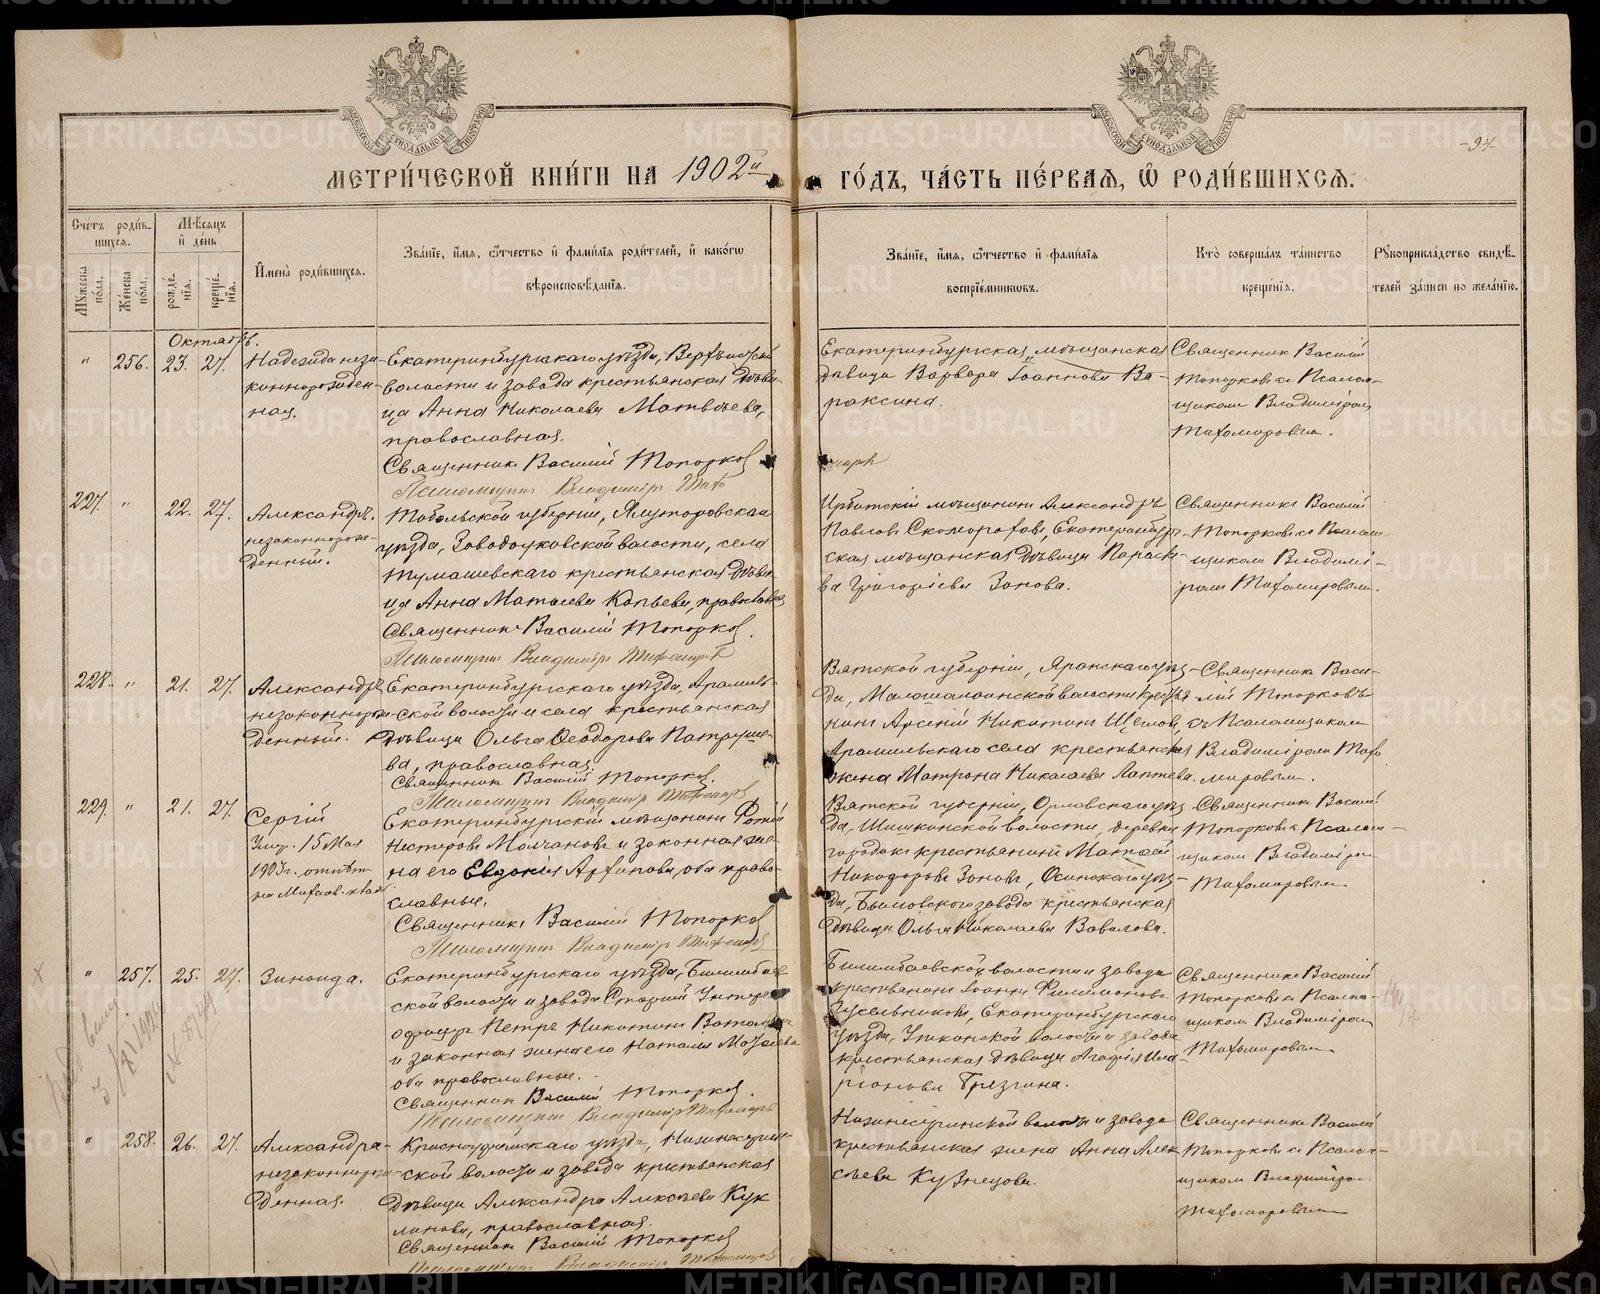 -94-
МЕТРИ́ЧЕСКОЙ КНИ́ГИ НА 1902й ГО́ДЪ, ЧА́СТЬ ПЕ́РВАѦ, Ѡ РОДИ́ВШИХСѦ.
Сче́тъ роди́в-
шихсѧ.
Мѣ́сѧцъ
и҆ де́нь
Мꙋ́жеска по́ла.
Же́нска по́ла.
рожде́-нїѧ.
креще́-нїѧ.
И҆мена̀ роди́вшихсѧ.
Зва́нїе, и҆́мѧ, ѻ҆́тчество и҆ фами́лїѧ роди́телей, и҆ како́гѡ
вѣроисповѣ́данїѧ.
Зва́нїе, и҆́мѧ, ѻ҆́тчество и҆ фами́лїѧ
воспрїе́мникѡвъ.
Кто̀ соверша́лъ та́инство
креще́нїѧ.
Рꙋкоприкла́дство свидѣ́-
телей за́писи по жела́нїю.
Октябрь.
" 256. 23. 27.
Надежда неза-
коннорожден-
ная.
Екатеринбургскаго уѣзда,
волости и завода крестьянская дѣви-
ца Анна Николаева Матвѣева,
православная.
Священникъ Василій Топорков
Псаломщикъ Владимiръ
Екатеринбургская мѣщанская
дѣвица Варвара Іоаннова Ва-
раксина.
Священник Василій
Топорковъ съ Псалом-
щикомъ Владиміром
Тихомировым.
227. " 22. 27.
Александръ.
незаконнорож-
денный.
Тобольской губерніи, Ялуторовскаго
уѣзда, Заводоуковской волости, села
Тумашевскаго крестьянская дѣви-
ца Анна Матвеева Копьева, православная
Священникъ Василій Топорков.
Псаломщикъ Владимiръ Тихомиров
Ирбитскій мѣщанинъ Александръ
Павловъ Скоморохов, Екатеринбур-
ская мѣщанская дѣвица Параске-
ва Григоріева Зонова.
Священникъ Василій
Топорковъ съ Псалом-
щикомъ Владимі-
ромъ Тихомировым.
228. " 21. 27.
Александръ
незаконнорож-
денный.
Екатеринбургскаго уѣзда, Арамиль-
ской волости и села крестьянская
дѣвица Ольга Ѳеодорова Патруше-
ва, православная.
Священник Василій Топорков.
Псаломщикъ Владимiръ Тихомиров
Вятской губерніи, Яранскаго уѣз-
да, волости крестья-
нинъ Арсеній Никитинъ
Арамильскаго села крестьянская
жена Матрона Николаева Лаптева.
Священникъ Васи-
лій Топорковъ
съ Псаломщиком
Владиміром Тихо-
мировым.
229. " 21. 27.
Сергій
Умер. 15 Мая
1903г. отпѣт
на
Екатеринбургскій мѣщанинъ Фотій
Нестеровъ Молчановъ и законная же-
на его Евдокія оба право-
славные.
Священникъ Василій Топорков
Псаломщикъ Владимiръ Тихомиров
Вятской губерніи, Орловскаго уѣз-
да, волости, деревни
крестьянинъ Матѳей
Никифоровъ Зоновъ, Осинскаго уѣз-
да, завода крестьянская
дѣвица Ольга Николаева Вавилова.
Священникъ Василій
Топорковъ съ Псалом-
щиком Владиміром
Тихомировым
" 257. 25. 27.
Зинаида.
Екатеринбургскаго уѣзда, Билимбаев-
ской волости и завода Старшій Унтеръ-
офицеръ Петръ Никитинъ
и законная жена его Наталія
оба православные.
Священник Василій Топорков.
Псаломщикъ Владимiръ Тихомиров
Билимбаевской волости и завода
крестьянинъ Іоаннъ Филимоновъ
Гусельниковъ, Екатеринбургскаго
уѣзда, Уткинской волости и завода
крестьянская дѣвица Агафія Ила-
ріонова Брезгина.
Священникъ Василій
Топорковъ съ Псалом-
щиком Владиміром
Тихомировым
" 258. 26. 27.
Александра
незаконнорож-
денная.
Красноуфимскаго уѣзда, Нижнесергин-
ской волости и завода крестьянская
дѣвица Александра Алексѣева Кук-
линова, православная.
Священникъ Василій Топорков
Псаломщикъ Владимiръ Тихомиров
Нижнесергинской волости и завода
крестьянская жена Анна Алек-
сѣева Кузнецова.
Священникъ Василій
Топорковъ съ Псалом-
щиком Владиміром
Тихомировым
METRIKI.GASO-URAL.RU